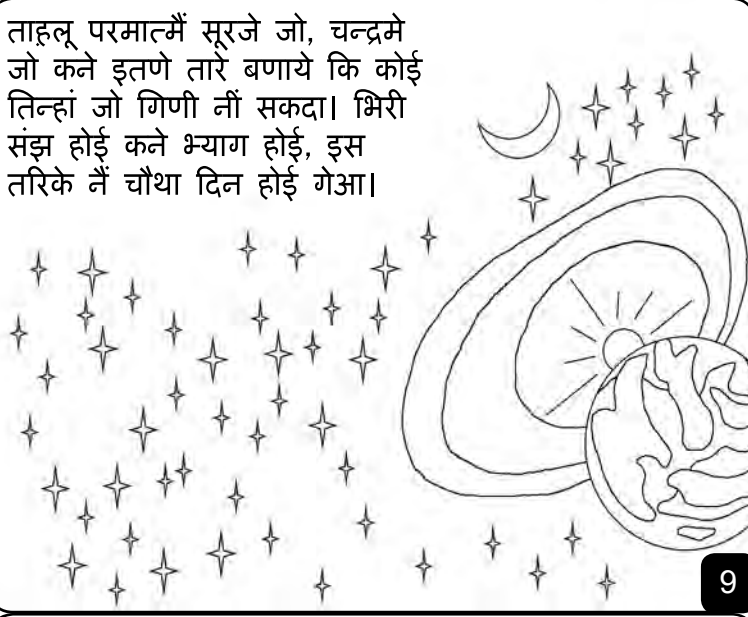 ताह़्लू परमात्मैं सूरजे जो, चन्द्रमे
जो कने इतणे तारे बणाये कि कोई
तिन्हां जो गिणी नीं सकदा। भिरी
संझ होई कने भ्याग होई, इस
तरिके नैं चौथा दिन होई गेआ।
9